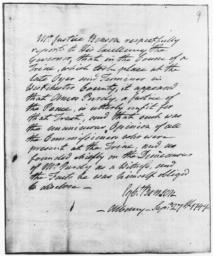 Mr Justice Benson respectfully
reports to his Excellency the
Governor, that in the Course of a
Trial, which took place at the
last Oyer and Terminer in
Westchester County, it appeared
that Amos Purdy, a Justice of
the Peace, is utterly unfit for
that Trust, and that such was
the unanimous Opinion of all
the Commissioners who were
present at the Trial, and as
founded chiefly on the Demeanour
of Mr Purdy as a Witness, and
the Facts he was himself obliged
to disclose
Egb. Benson
Albany Sepr 27th